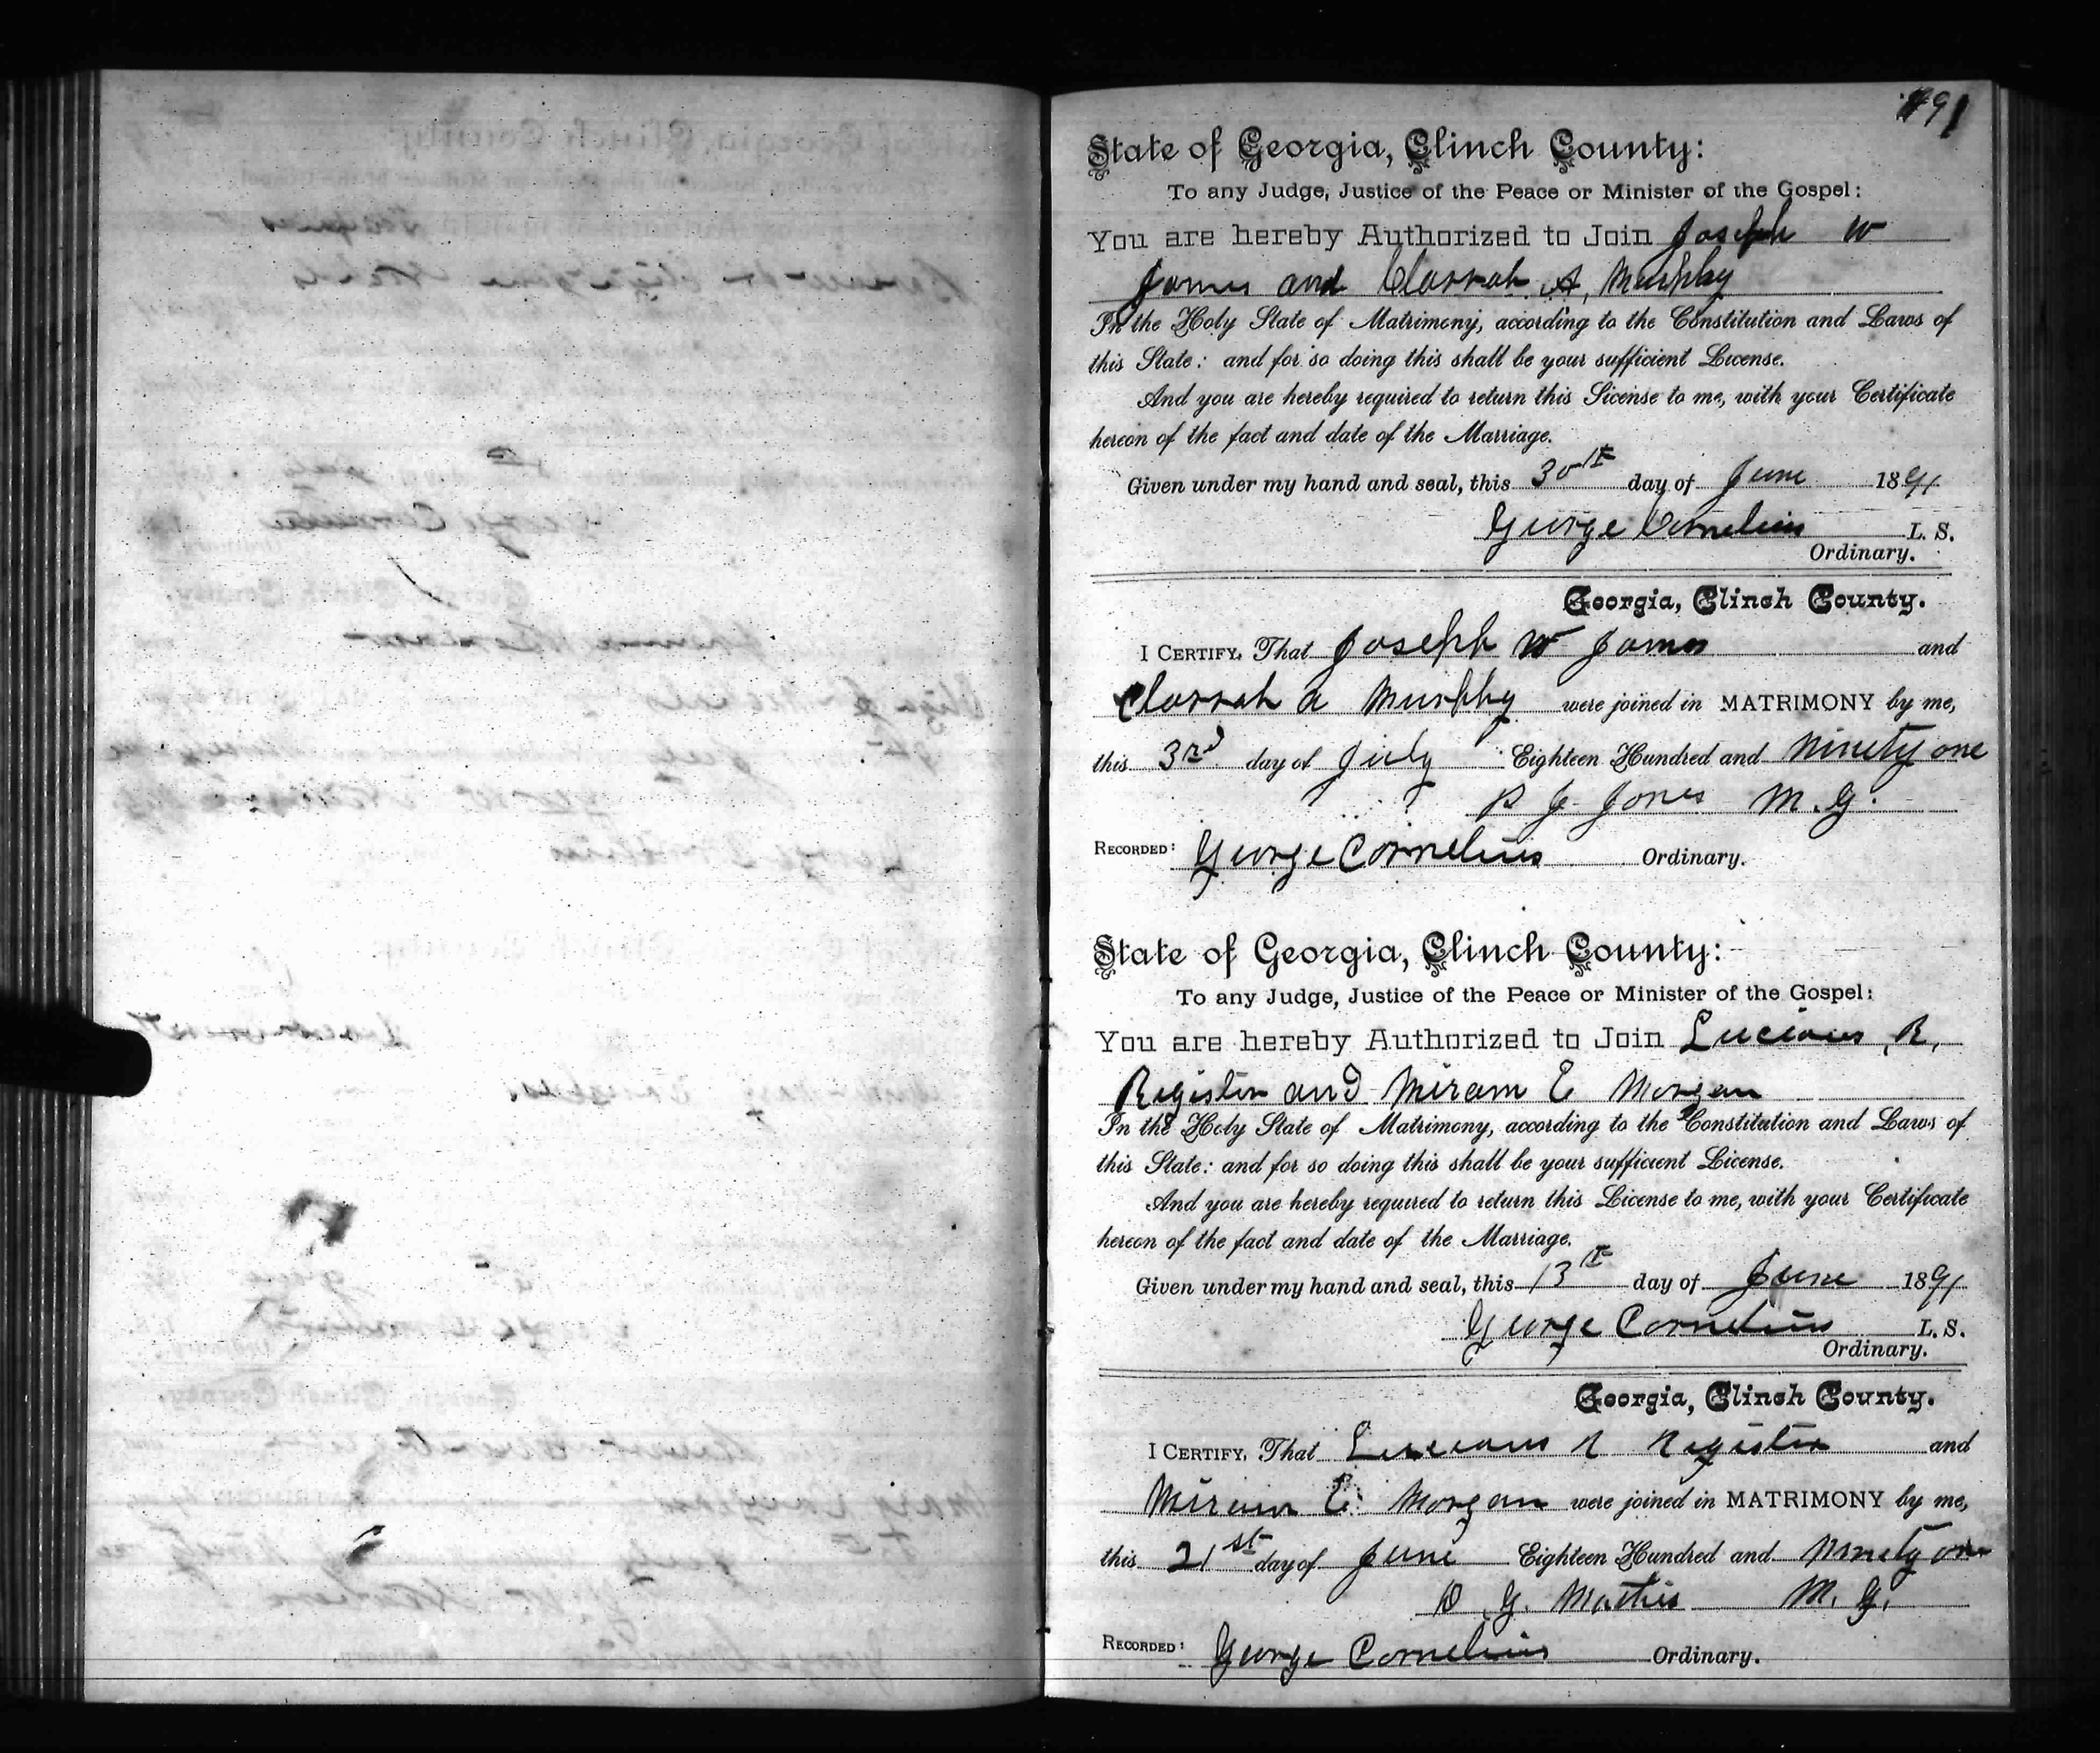 State of Georgia, Clinch County:
To any Judge, Justice of the Peace or Minister of the Gospel:
You are hereby Authorized to Join Joseph W
James and Clarrah A, Murphy
In the Holy State of Matrimony, according to the Constitution and Laws of
this State: and for so doing this shall be your sufficient License.
And you are hereby required to return this License to me, with your Certificate
hereon of the fact and date of the Marriage.
Given under my hand and seal, this 30th day of June 1891
George Cornelius L. S.
Ordinary.
Georgia, Clinch County.
I CERTIFY, That Joseph W James and
Clarrah a Murphy were joined in MATRIMONY by me,
this 3rd day of July Eighteen Hundred and Ninety one
J. Jones M. G.
RECORDED: George Cornelius Ordinary.
State of Georgia, Clinch County:
To any Judge, Justice of the Peace or Minister of the Gospel:
You are hereby Authorized to Join Lucious R,
Register and Miram E Morgan
In the Holy State of Matrimony, according to the Constitution and Laws of
this State: and for so doing this shall be your sufficient License.
And you are hereby required to return this License to me, with your Certificate
hereon of the fact and date of the Marriage.
Given under my hand and seal, this 13th day of June 1891
George Cornelius L. S.
Ordinary.
Georgia, Clinch County.
I CERTIFY, That Lucious R Register and
Miram E. Morgan were joined in MATRIMONY by me,
this 21st day of June Eighteen Hundred and Ninety one
G. Mathis M. G.
RECORDED: George Cornelius Ordinary.